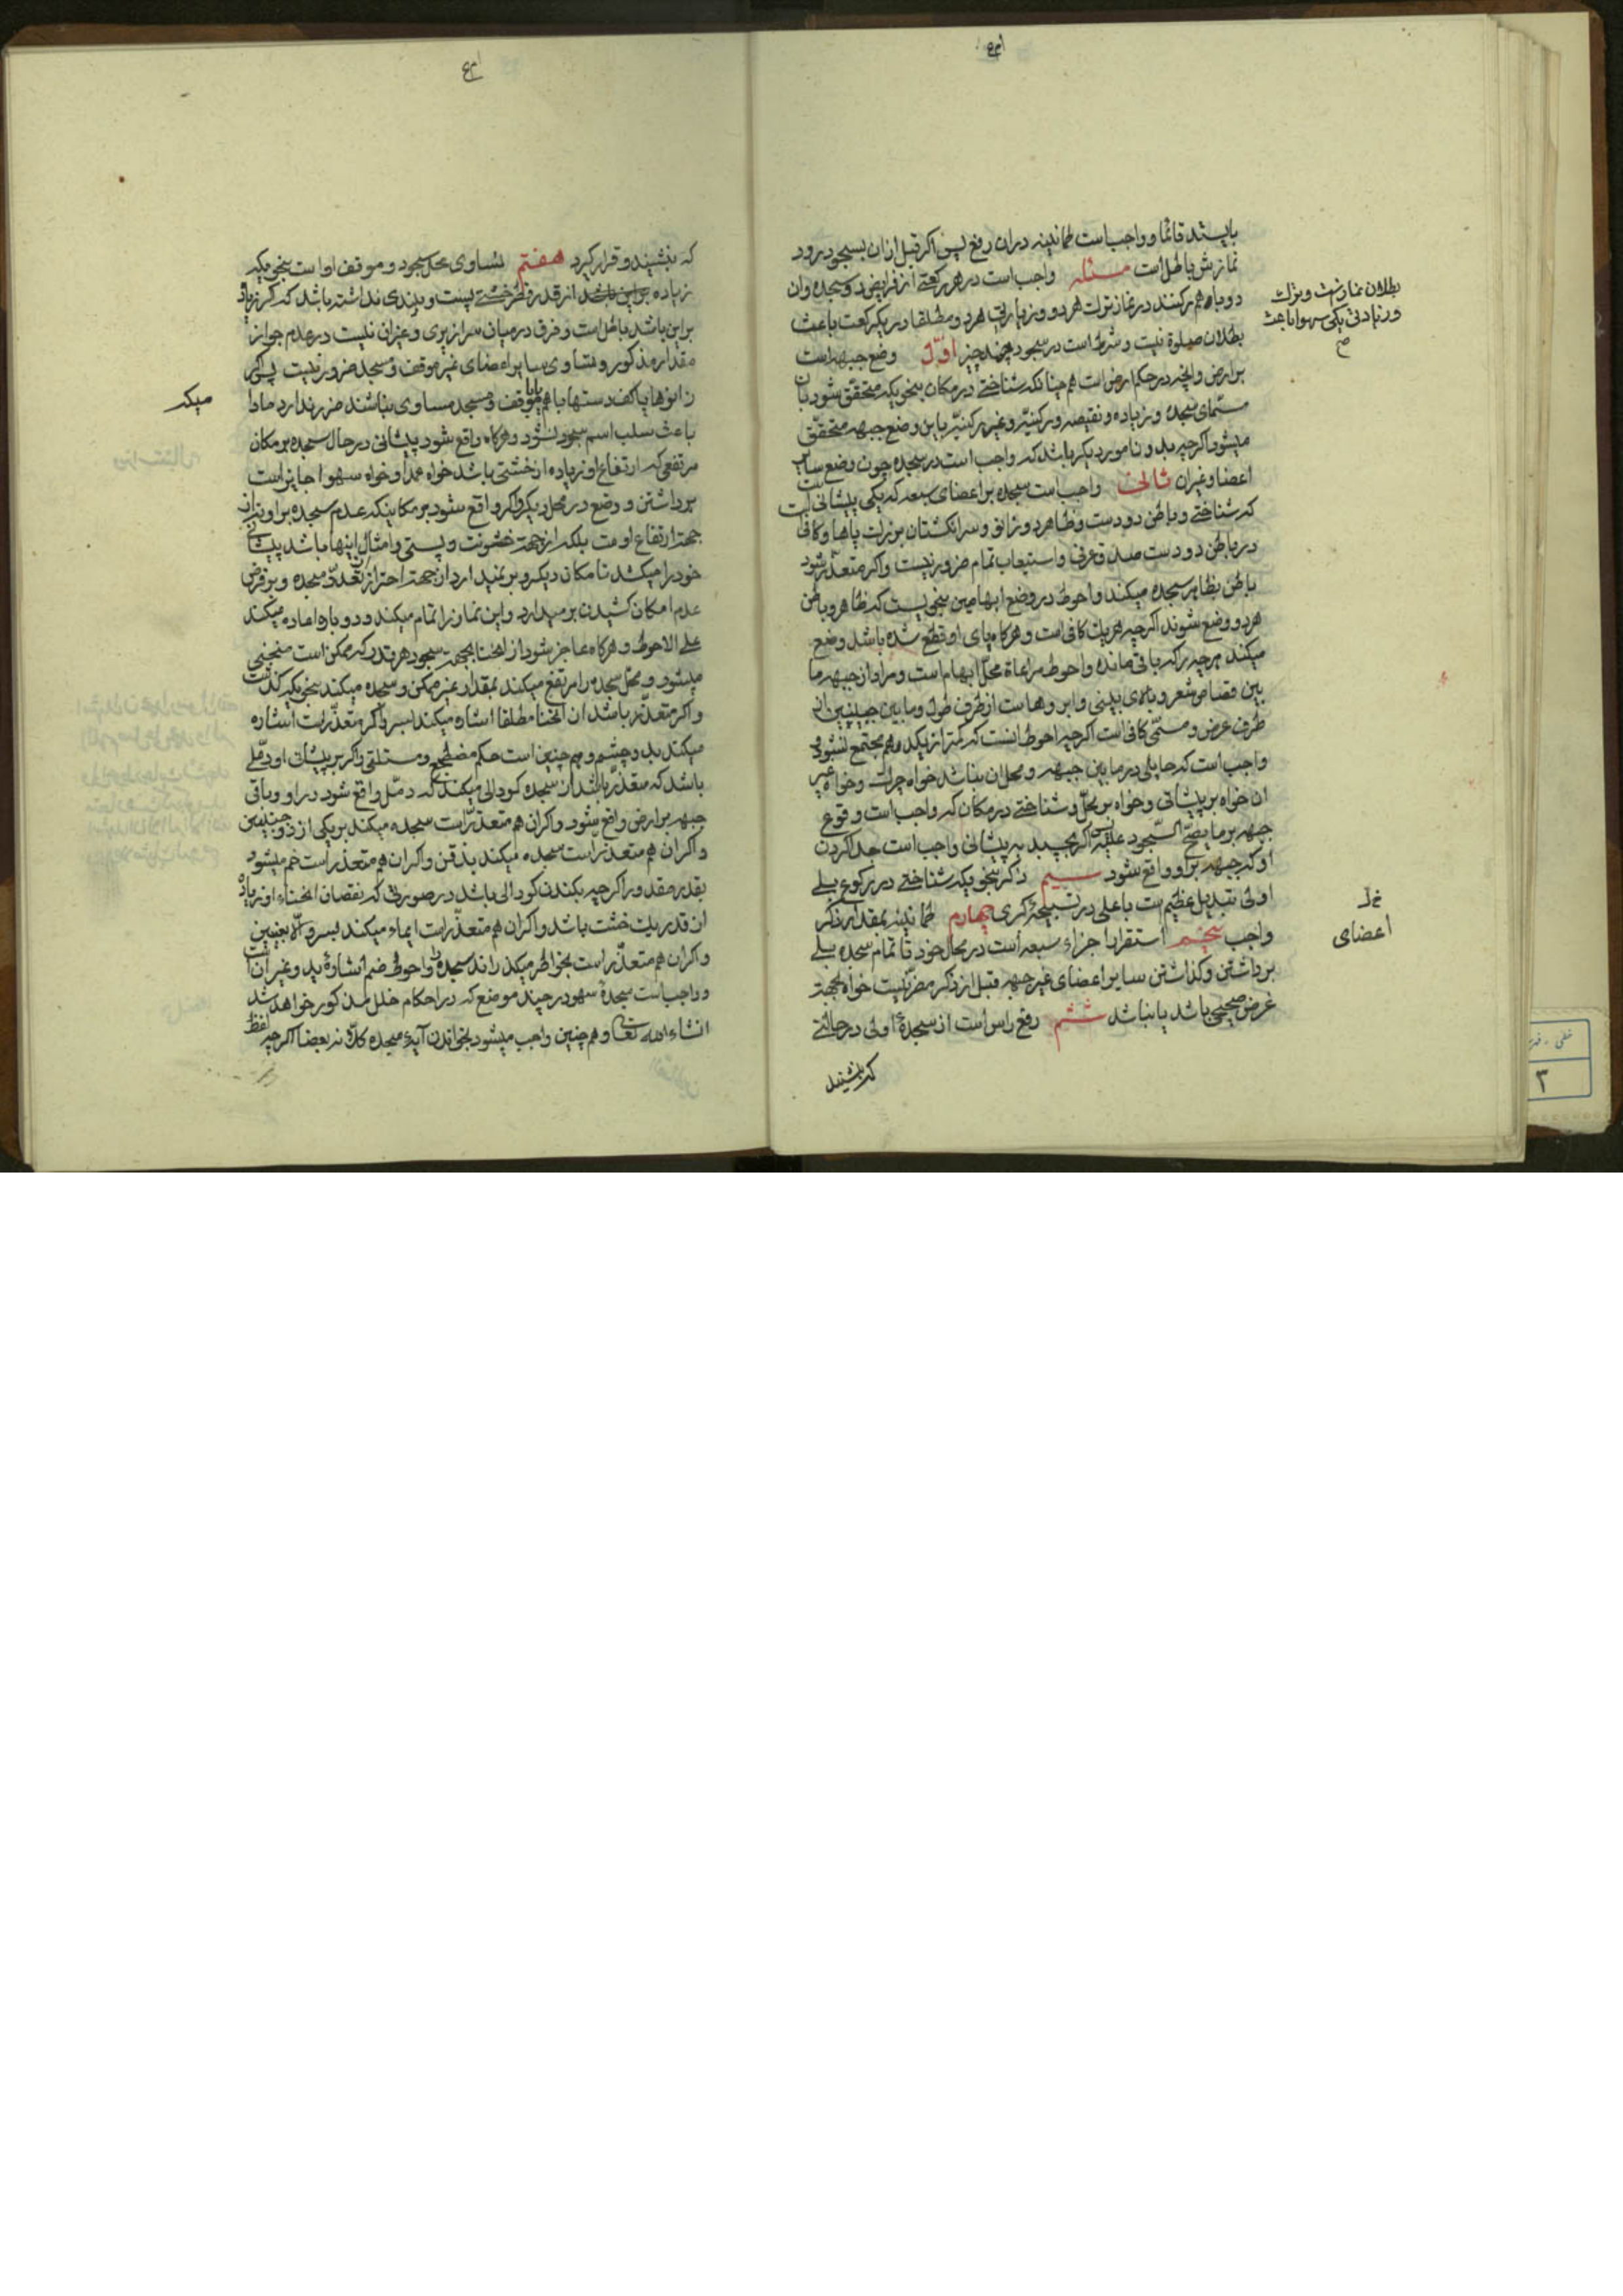 بایستد قائما و واجب است طمانینه در ان رفع پس اکر قبل از ان بسجود رود
نمازش باطل است مسئله واجب است در هر رکعتی از فرایض دو سجده وان
دو باهم رکنند در نماز بترک هر دو و زیادتی هر دو مطلقا در یک رکعت باعث
بطلان نماز نیست و بترک
و زیادتی یکی سهوا باعث
صح
بطلان صلوة نیست و شرط است در سجود چند چیز اوّل وضع جبهه است
بر ارض و انچه در حکم ارض است هم چنانکه شناختی در مکان بنحویکه متحقق شود بان
مسمّای سجده و زیاده و نقیصه و رکنیّه و غیر رکنیّه باین وضع جبهه متحقق
میشود اکرچه بدون امور دیکر باشد که واجب است در سجده چون وضع سایر
اعضا و غیر ان ثانی واجب است سجده بر اعضای سبعه که یکی پیشانی است
که شناختی و باطن دو دست و ظاهر دو زانو و سر انکشتان بزرک پاها و کافی
در باطن دو دست صدق عرفی و استیعاب تمام ضرور نیست واکر متعذر شود
باطن بظاهر سجده میکند و احوط در وضع ابهامین بنحویست که ظاهر و باطن
هر دو وضع شوند اکرچه هر یک کافی است و هرکاه پای او قطع شده باشد وضع
میکند هرچه را که باقی مانده و احوط مراعاة محلّ ابهام است و مراد از جبهه ما
بین قصاص شعر و بالای بینی و ابروهاست از طرف طول و ما بین جبینین از
طرف عرض و مسمّی کافی است اکرچه احوط انست که کمتر از یکدرهم مجتمع نشود و
واجب است که حایلی در ما بین جبهه و محل ان نباشد خواه چرک و خواه غیر
ان خواه بر پیشانی و خواه بر محلّ و شناختی در مکان که واجب است وقوع
جبهه بر ما یصحّ السّجود علیه پس اکر بچسبد به پیشانی واجب است جدا کردن
او که جبهه بر او واقع شود سیم ذکر بنحویکه شناختی در رکوع بلی
اولی تبدیل عظیم است باعلی در تسبیحهٔ کبری چهارم طمانینه بمقدار ذکر
واجب پنجم استقرار اجزاء سبعه است در محال خود تا تمام سجده بلی
خ ل
اعضای
برداشتن و کذاشتن سایر اعضای غیر جبهه قبل از ذکر مضر نیست خواه بجهة
غرض صحیحی باشد یا نباشد ششم رفع راس است از سجدهٔ اولی در حالتی
که بنشیند
که بنشیند و قرار کیرد هفتم تساوی محل سجود و موقف او است بنحویکه
زیاده از قدر قطر خشتی پست و بلندی نداشته باشد که اکر زیاد
بر این باشد باطل است و فرق در میان سرازیری و غیر ان نیست در عدم جواز
مقدار مذکور و تساوی سایر اعضای غیر موقف و مسجد ضرور نیست پس اکر
زانوها یا کف دستها باهم یا با موقف و مسجد مساوی نباشند ضرر ندارد مادا
میکه
باعث سلب اسم سجود نشود و هرکاه واقع شود پیشانی در حال سجده بر مکان
مرتفعی که ارتفاع او زیاده از خشتی باشد خواه عمدا و خواه سهوا جایز است
برداشتن و وضع در محل دیکر و اکر واقع شود بر مکانیکه عدم سجده بر او نه از
جهة ارتفاع اوست بلکه از جهت خشونت و پستی و امثال اینها باشد پیشانی
خود را میکشد تا مکان دیکر و بر نمیدارد از جهة احتراز از تعدّد سجده و بر فرض
عدم امکان کشیدن بر میدارد و این نماز را تمام میکند و دو باره اعاده میکند
علی الاحوط و هرکاه عاجز شود از انحنا بجهت سجود هر قدر که ممکن است منحنی
میشود و محلّ سجده را مرتفع میکند بمقدار غیر ممکن و سجده میکند بنحویکه کذشت
و اکر متعذر باشد ان انحنا مطلقا اشاره میکند بسر و اکر متعذّر است اشاره
میکند بدو چشم و هم چنین است حکم مضطجع و مستلقی و اکر بر پیشانی او دمّلی
باشد که متعذر باشد ان سجده کودالی میکند که دمّل واقع شود در او و باقی
جبهه بر ارض واقع شود و اکر ان هم متعذّر است سجده میکند بر یکی از دو جبینین
و اکر ان هم متعذّر است سجده میکند بذقن و اکر ان هم متعذر است خم میشود
بقدر مقدور اکرچه بکندن کودالی باشد در صورتی که نقصان انحناء او زیاده
از قدر یک خشت باشد و اکر ان هم متعذّر است ایماء میکند بسر و الّا بعینین
و اکر ان هم متعذّر است بخواطر میکذراند سجده را و احوط ضم اشارهٔ بید و غیر ان است
و واجب است سجدهٔ سهو در چند موضع که در احکام خلل مذکور خواهد شد
انشاء الله تعالی و هم چنین واجب میشود بخواندن آیهٔ سجده کلّا نه بعضا اکرچه لفظ